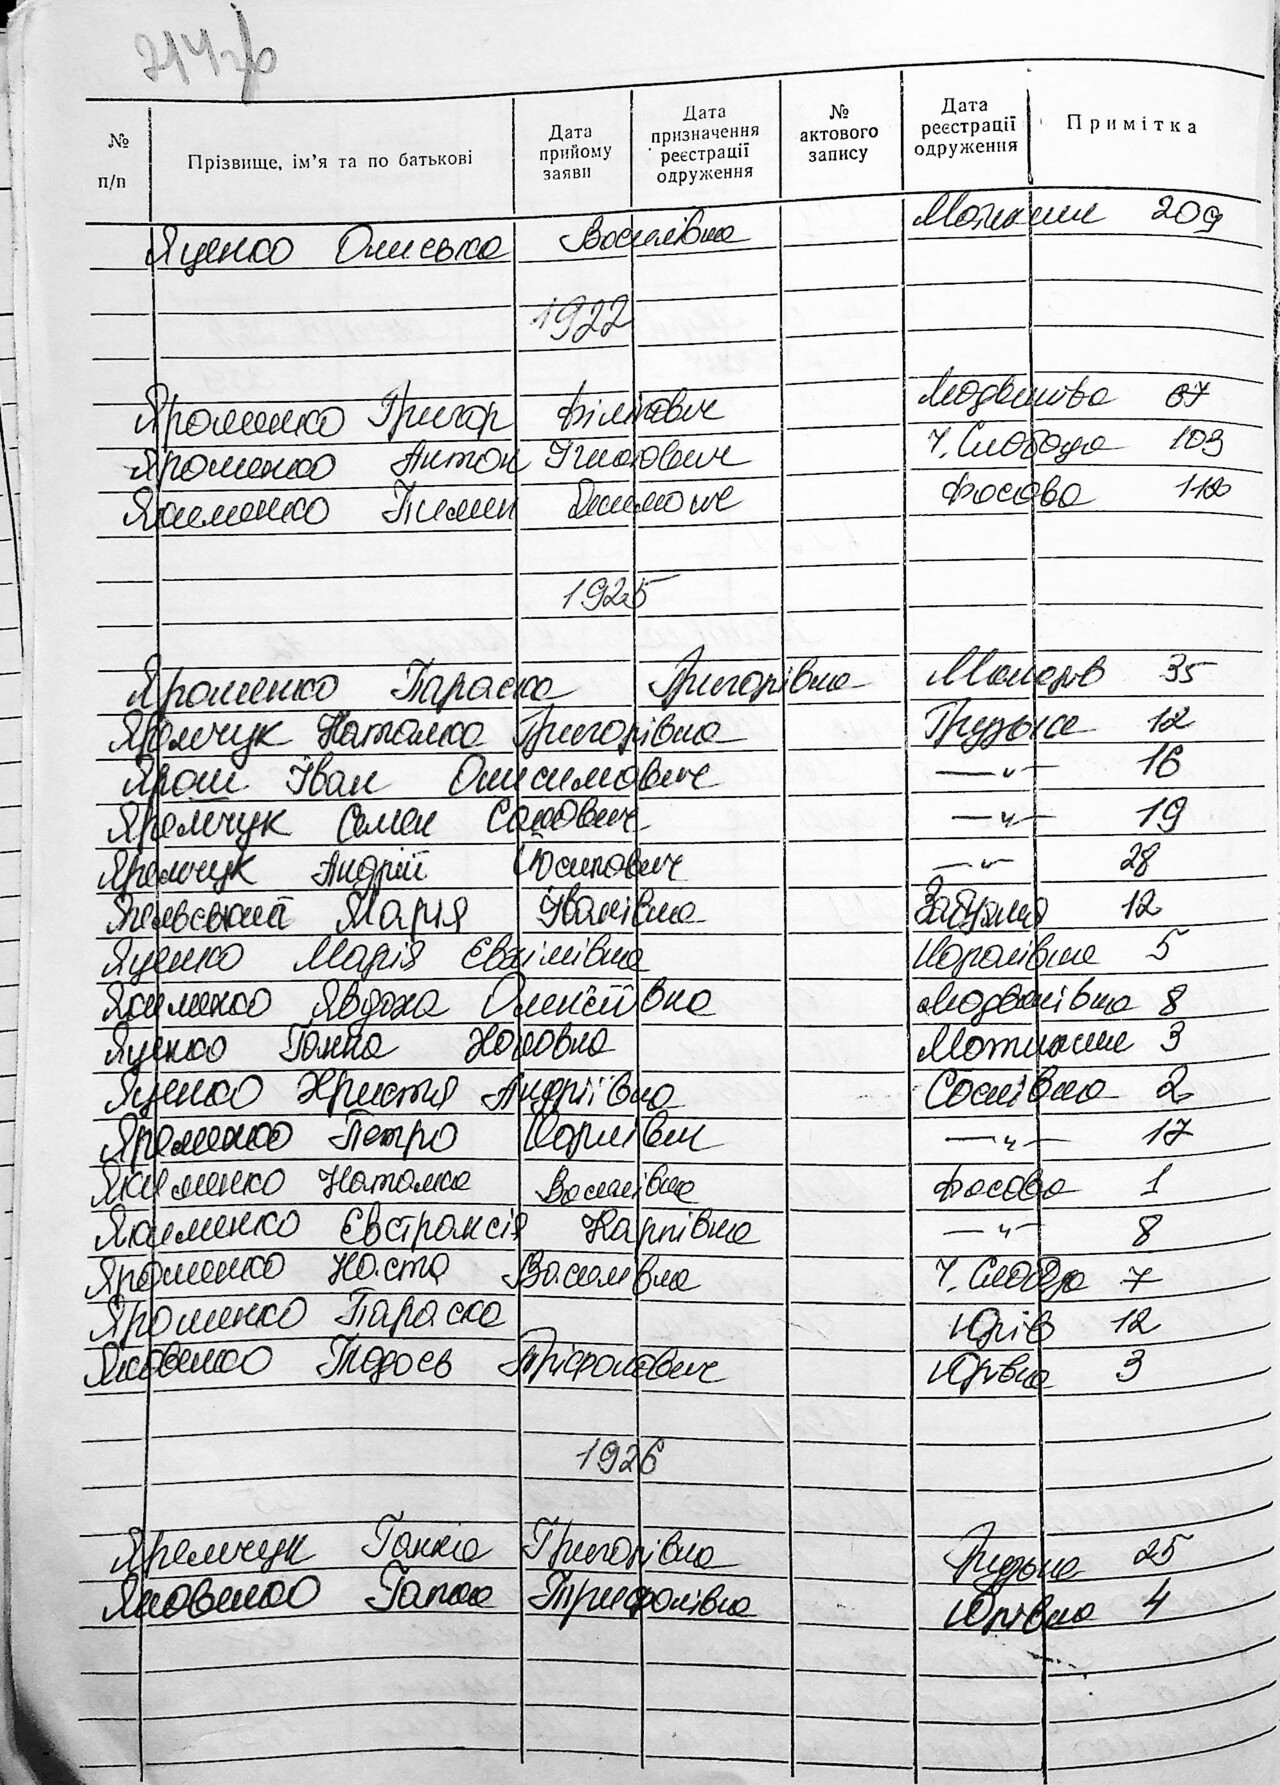 № п/п
Прізвище, ім'я та по батькові
Дата прийому заяви
Дата призначення реєстрації одруження
№ актового запису
Дата реєстрації одруження
Примітка
Яценко Ониська Василівна Мотижин 209
1922
Яроменко Григор Філітович 67
Яроменко Антон Гнатович Ч. Слобода 103
Якименко Пимен Фасова
1925
Яроменко Параска Григорівна Макарів 35
Яремчук Наталка Григорівна Грузьке 12
Ярош Іван Онисимович —"— 16
Яремчук Семен Савович —"— 19
Яремчук Андрій Йосипович —"— 28
Марія Іванівна Забуяння 12
Яценко Марія Королівка 5
Якименко Явдоха Олексіївна 8
Яценко Ганна Мотижин 3
Яценко Христя Андріївна Соснівка 2
Яременко Петро —"— 17
Якименко Наталка Василівна Фасова 1
Якименко Євстраксія Карпівна —"— 8
Яроменко Наста Василівна Ч. Слобода 7
Яроменко Параска Юрів 12
Яковенко Тодось Тріфонович Юрівка 3
1926
Яремчук Ганна Григорівна Грузьке 25
Яковенко Гапка Трифонівна Юрівка 4